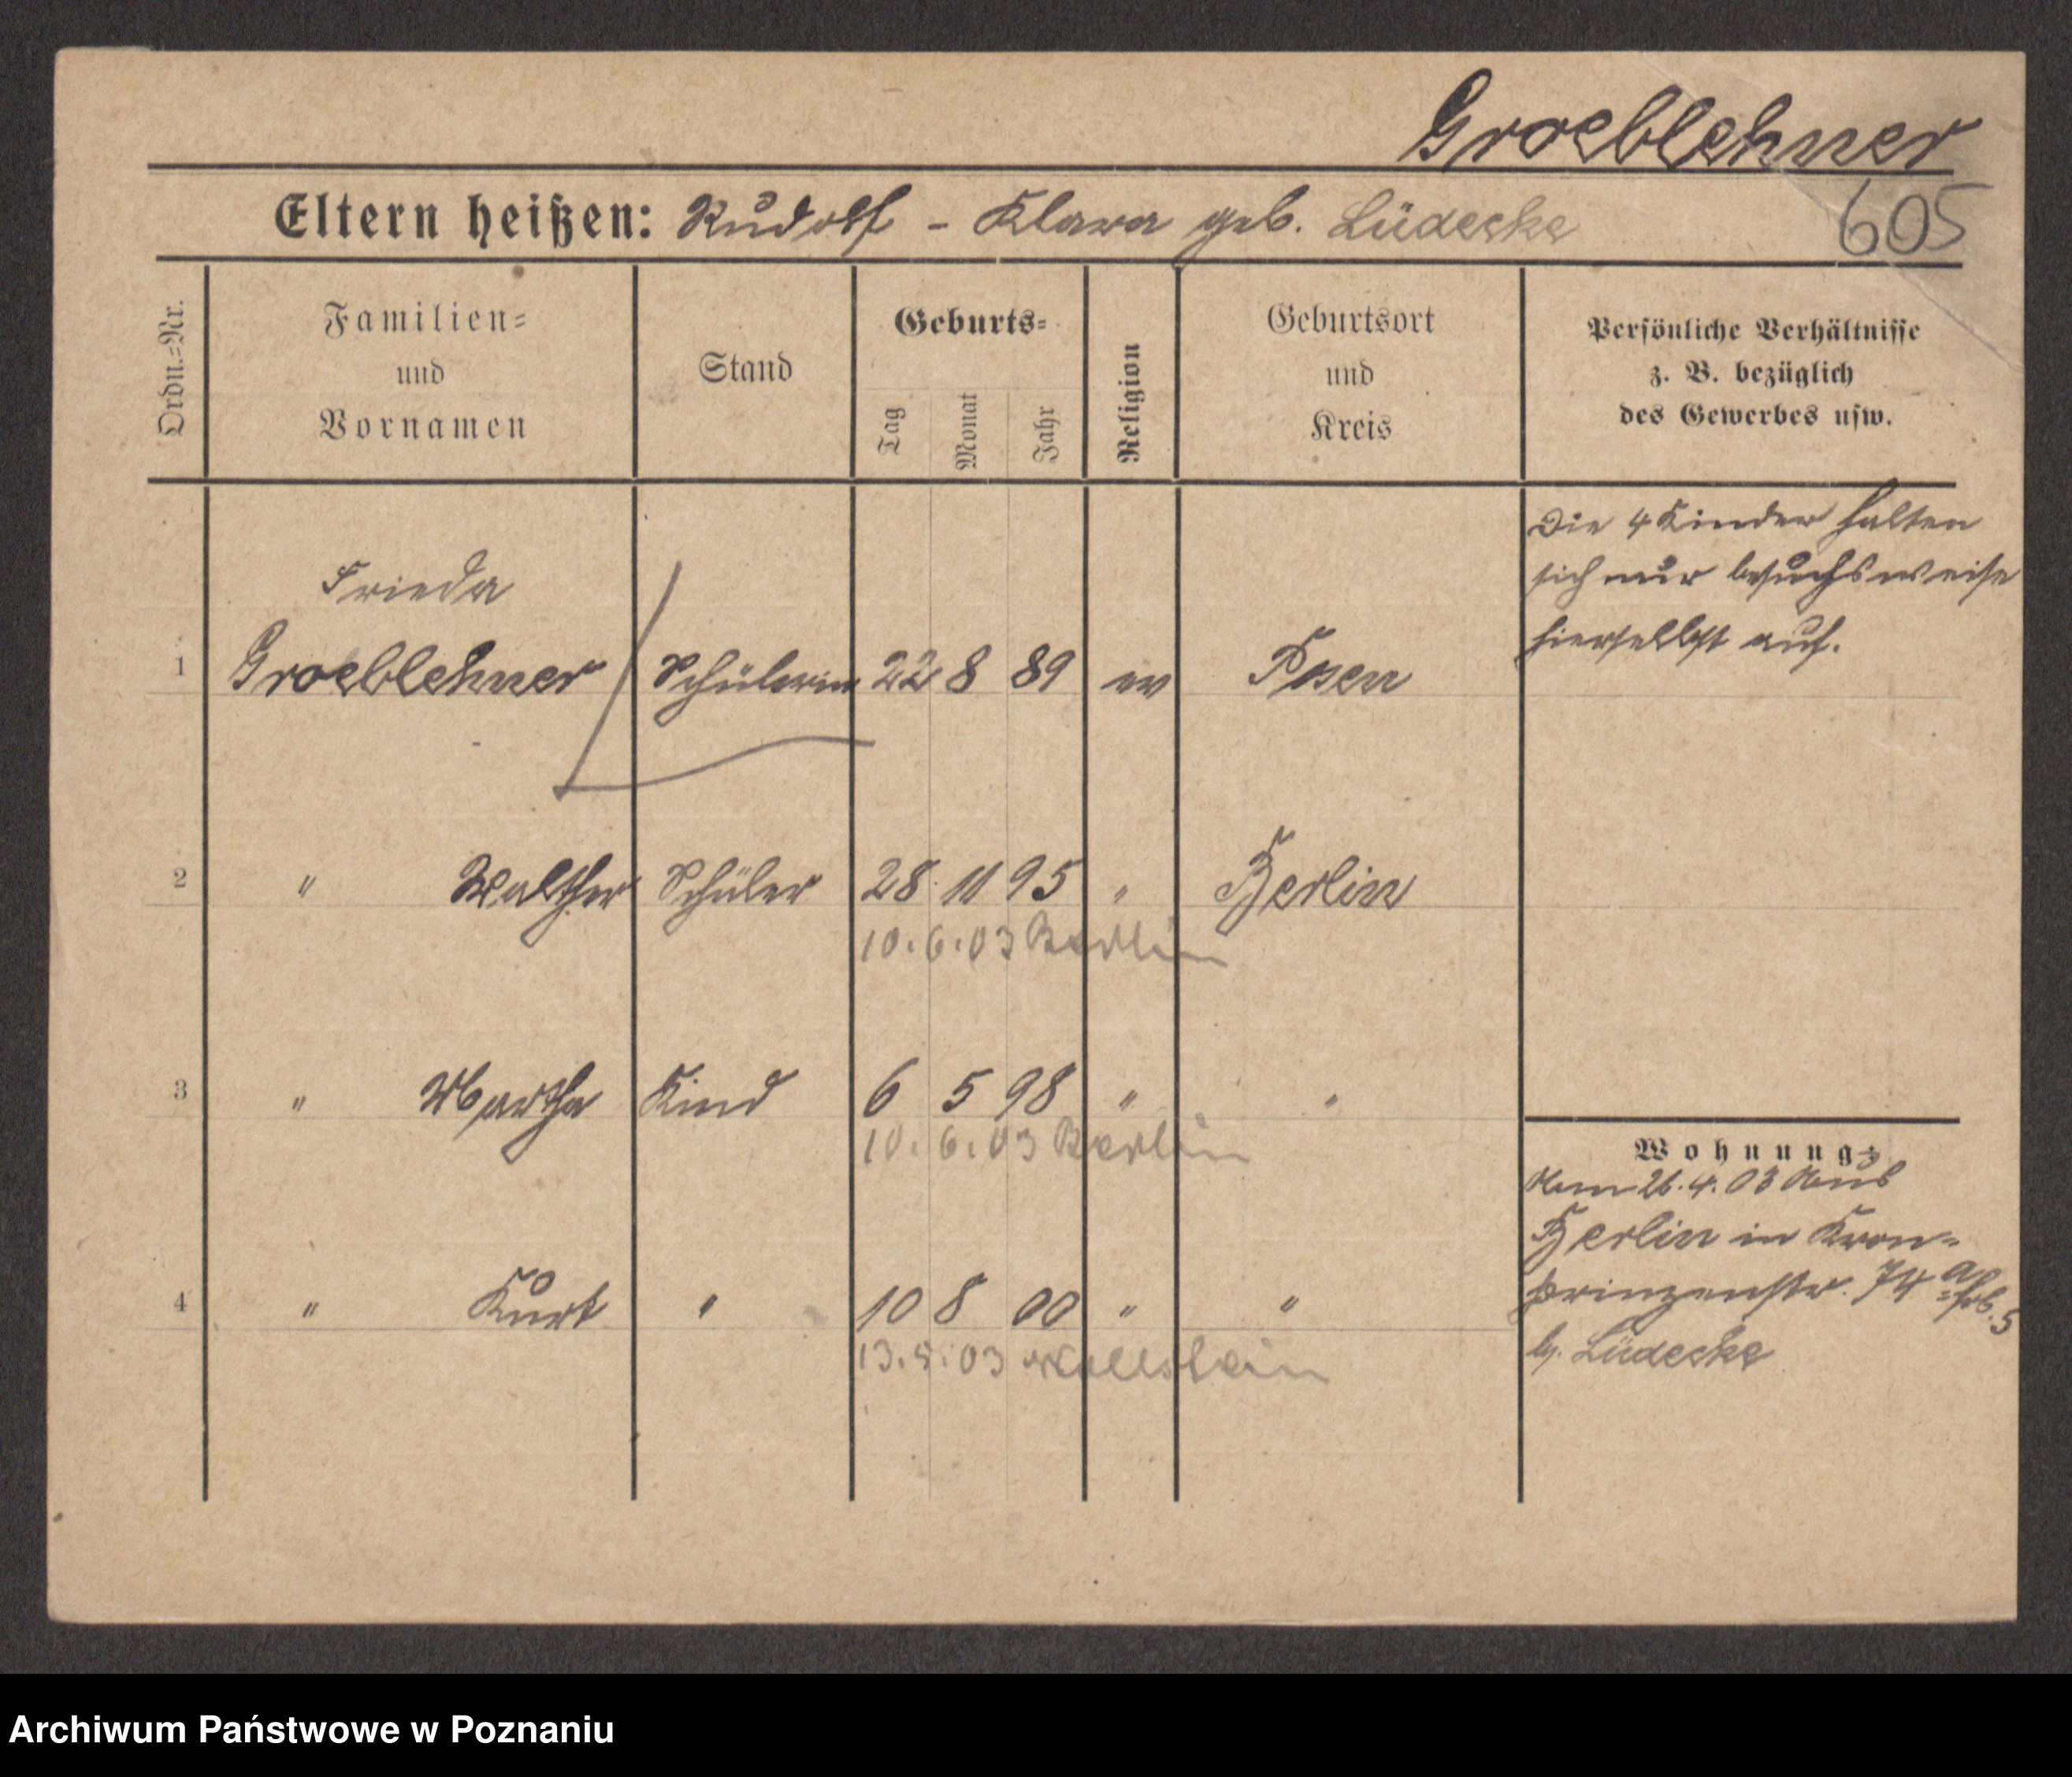 Groeblehner
Eltern heißen: Rudolf - Klara geb. Lüdecke
605
Ordn.=Nr.
Familien=
und
Vornamen
Stand
Geburts=
Tag
Monat
Jahr
Religion
Geburtsort
und
Kreis
Persönliche Verhältnisse
z. B. bezüglich
des Gewerbes usw.
Die 4 Kinder halten
sich nur besuchsweise
hierselbst auf.
Frieda
1 Groeblehner Schülerin 22 8 89 ev Posen
2 " Walther Schüler 28 11 95 " Berlin
10. 6. 03 Berlin
3 " Martha Kind 6 5 98 " "
10. 6. 03 Berlin
4 " Kurt " 10 8 00 " "
13. 5. 03 Wollstein
Wohnung:
26. 4. 03 aus
Berlin in Kron=
prinzenstr. 74
b. Lüdecke
Archiwum Państwowe w Poznaniu